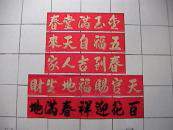 春堂滿玉金
來天自福五
家人吉到春
財生地福賜官天
地滿春祥迎花百